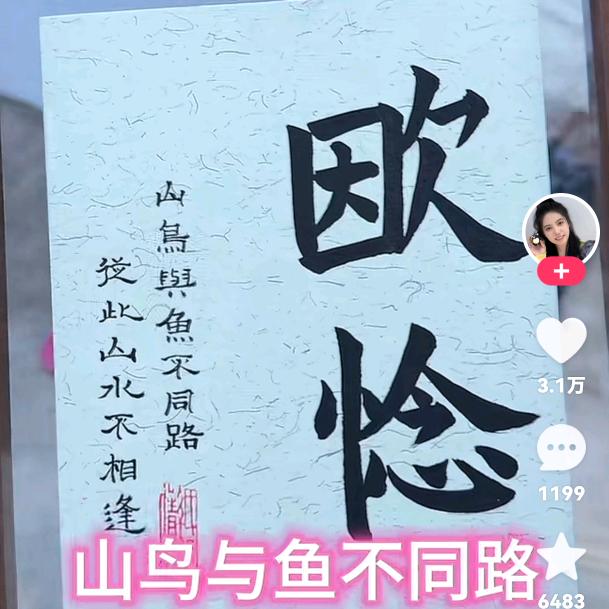 欭惗
山鳥與魚不同路
從此山水不相逢
山鸟与鱼不同路
3.1万
1199
6483